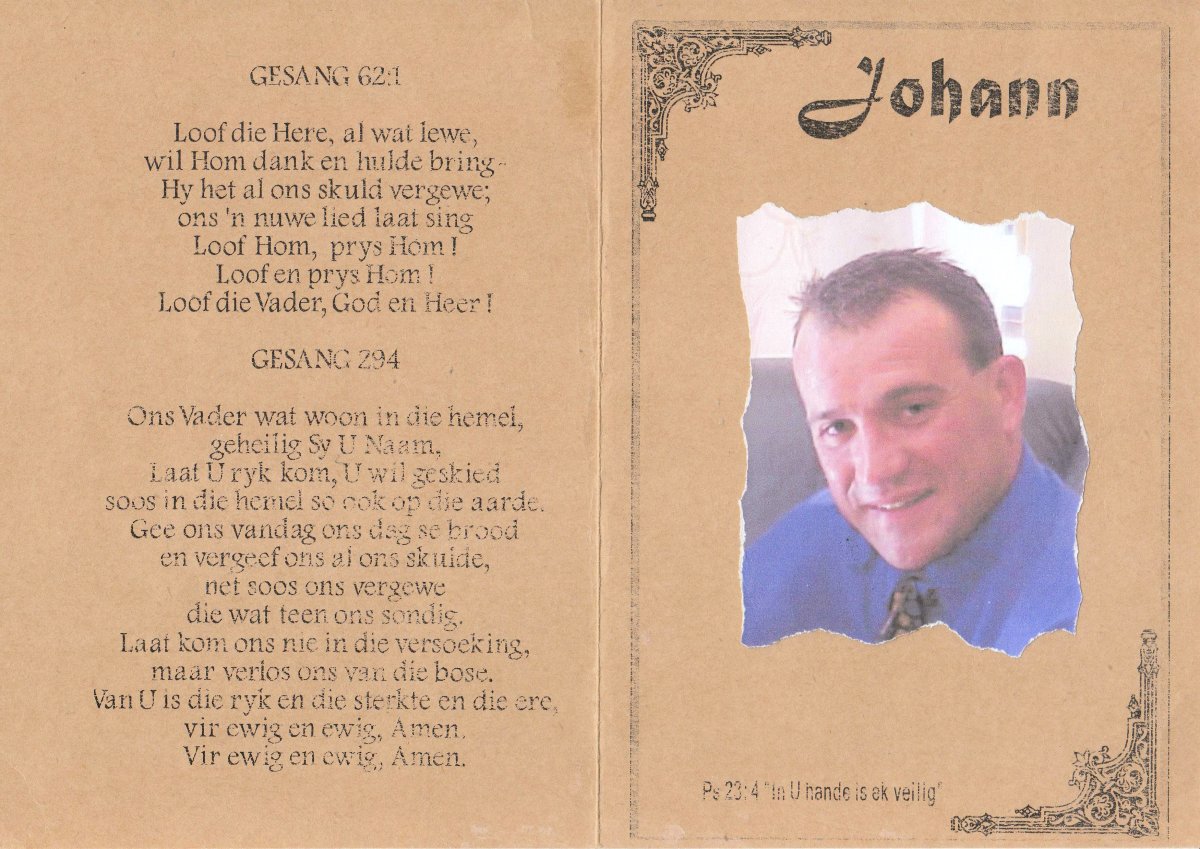 GESANG 62:1
Loof die Here, al wat lewe,
wil Hom dank en hulde bring-
Hy het al ons skuld vergewe;
ons 'n nuwe lied laat sing
Loof Hom, prys Hom !
Loof en prys Hom !
Loof die Vader, God en Heer !
GESANG 294
Ons Vader wat woon in die hemel,
geheilig Sy U Naam,
Laat U ryk kom, U wil geskied
soos in die hemel so ook op die aarde.
Gee ons vandag ons dag se brood
en vergeef ons al ons skulde,
net soos ons vergewe
die wat teen ons sondig.
Laat kom ons nie in die versoeking,
maar verlos ons van die bose.
Van U is die ryk en die sterkte en die ere,
vir ewig en ewig, Amen.
Vir ewig en ewig, Amen.
Johann
Ps 23: 4 "In U hande is ek veilig"